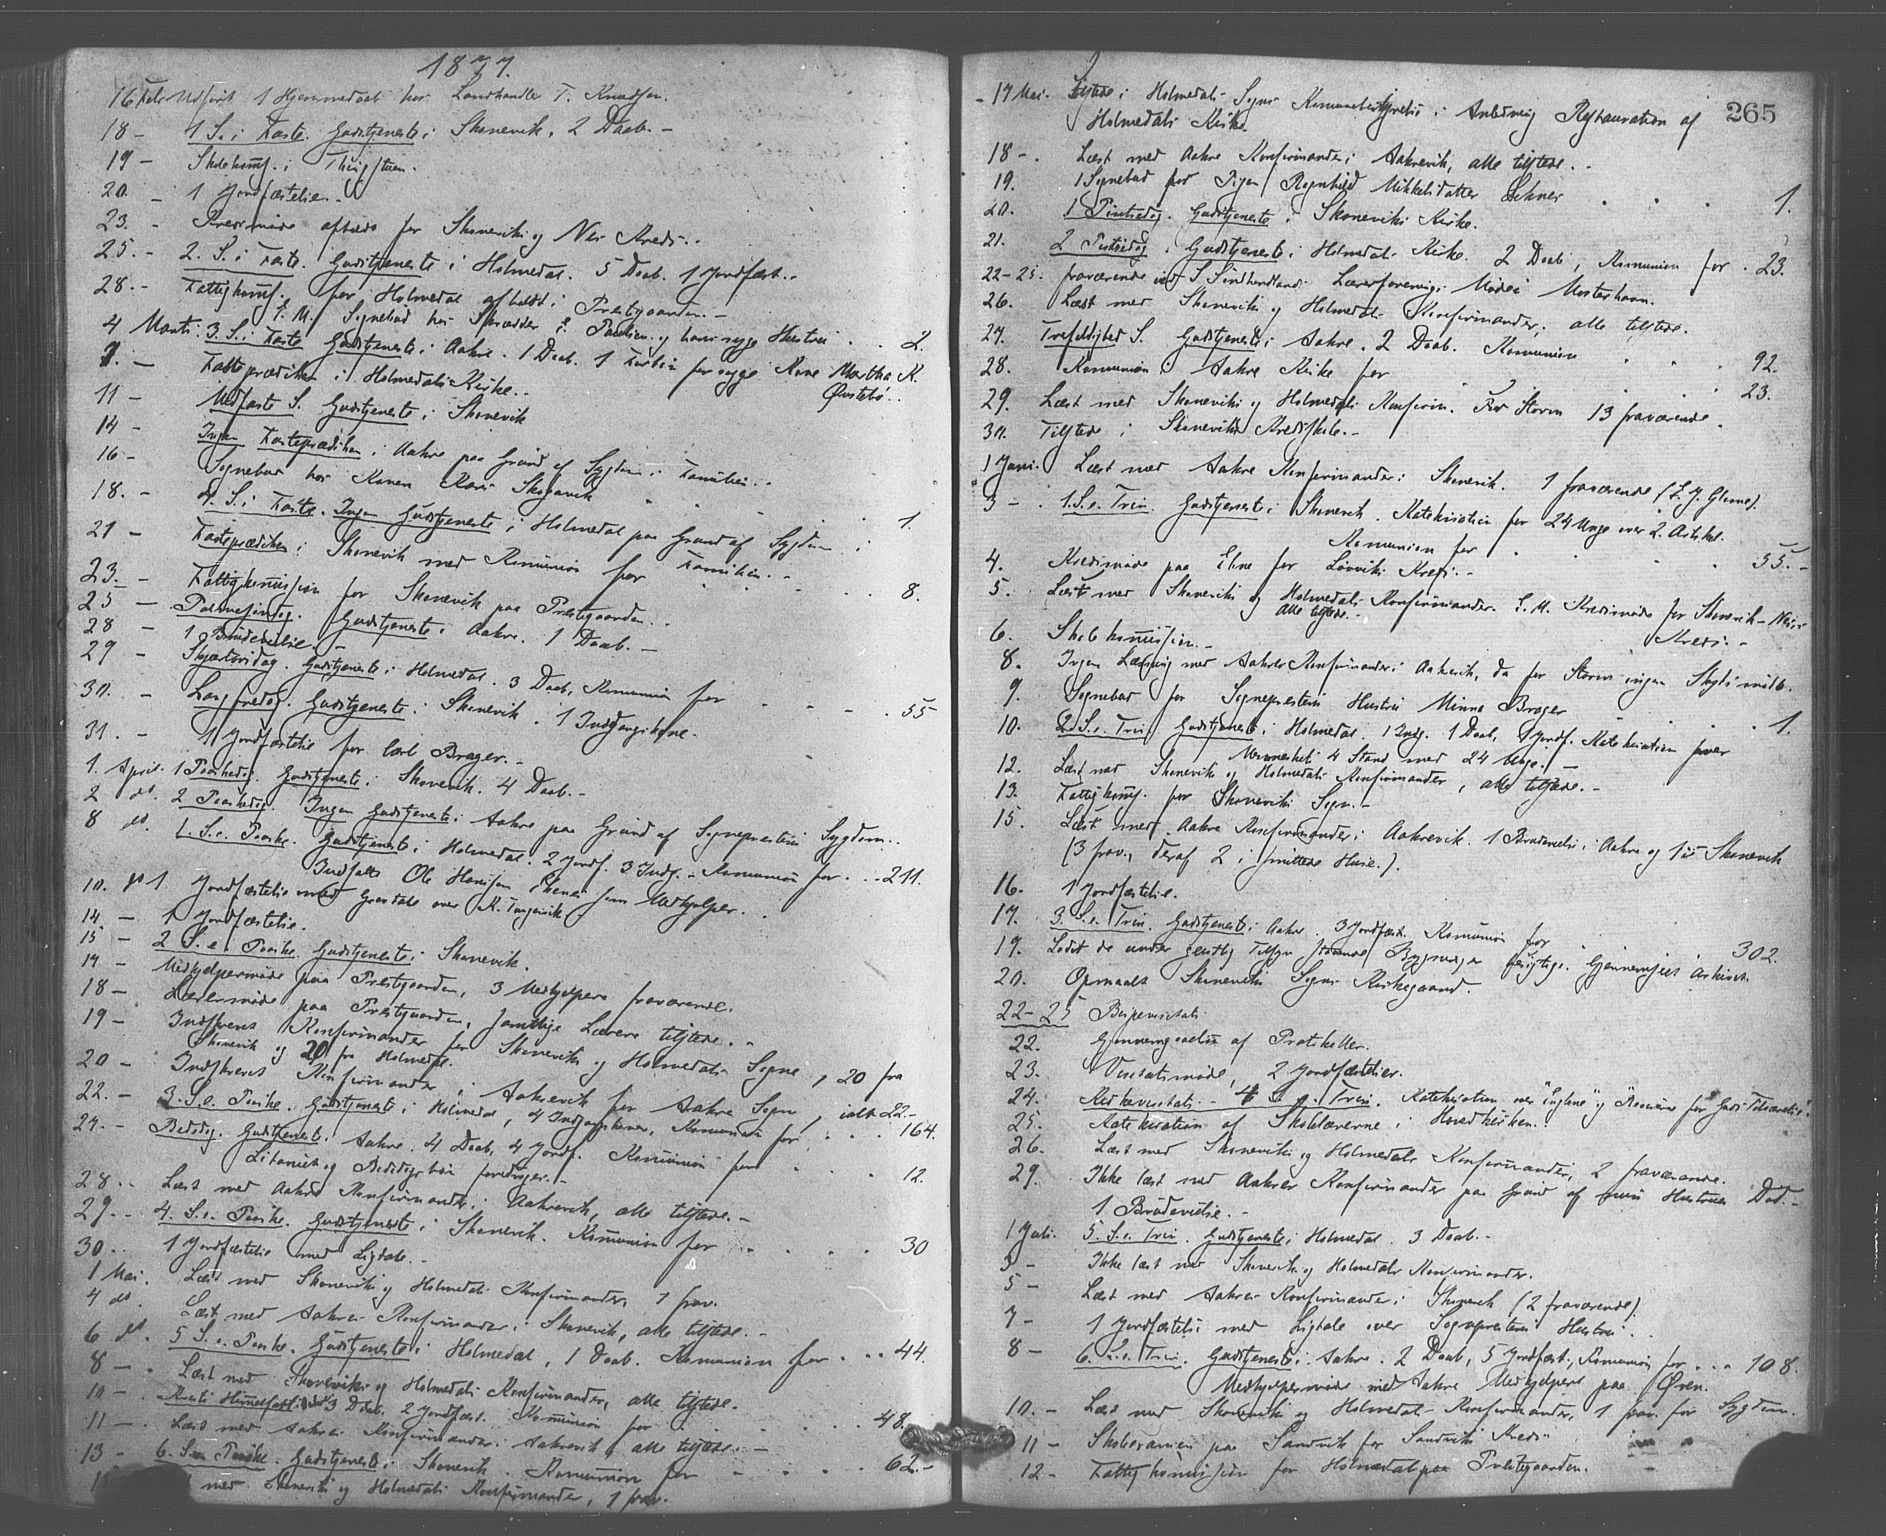 1877.
16 Febr Udført 1 Hjemmedaab hos Landhandler T. Knudsen.
18 - 1 S. i Faste. Gudstjeneste i Skonevik. 2 Daab. -
19 - Skolekoms. i Thingstuen.
20. - 1 Jordfæstelse. -
23. - Kredsmøde afholdt for Skoneviks og Nes Kreds. .
25. - 2. S. i Faste. Gudstjeneste i Holmedal. 5 Daab. 1 Jordfæst. .
28. - Fattigkoms. for Holmedal afholdt i Prestgaarden. -
E. M. Sognebud hos Skrædder E. Paulsen og hans syge Hustru . . . 2.
4 Marts. 3. S. i Faste Gudstjeneste i Aakre. 1 Daab. 1 Forbøn for syge Kone Martha K. Øvstebø. .
7. - Fasteprædiken i Holmedals Kirke. .
11 - Midfaste S. Gudstjeneste i Skonevik
14 - Ingen Fasteprædiken i Aakre paa Grund af Sygdom i Familien. .
16 - Sognebud hos Konen Kari . . . . 1.
18. - d. S. i Faste. Ingen Gudstjeneste i Holmedal paa Grund af Sygdom i Familien. -
21 - Fasteprædiken i Skonevik med Komunion for . . . . 8.
23. - Fattigkomission for Skonevik paa Prestgaarden. .
25 - Palmesøndag. Gudstjeneste i Aakre. 1 Daab. -
28 - 1 Brudevielse -
29 - Skjærtorsdag. Gudstjeneste i Holmedal. 3 Daab, Komunion for . . . . 55
30. - Langfredag. Gudstjeneste i Skonevik. 1 Indgangskone.
31. - 1 Jordfæstelse for Carl Brager. -
1. April. 1 Paaskedag. Gudstjeneste i Skonevik. 4 Daab. -
2 do. 2 Paaskedag. Ingen Gudstjeneste i Aakre paa Grund af Sogneprestens Sygdom. .
8 do. 1. S. e. Paaske. Gudstjeneste i Holmedal. 2 Jordf. 3 Indg. - Komunion for . . . 211.
Indsatte Ole Hansen Ebene som Medhjelper. .
10. 1 Jordfæstelse med Gravtale over K.
14. - 1 Jordfæstelse.
15 - 2 S. e. Paaske. Gudstjeneste i Skonevik.
17 - Medhjelpermøde paa Prestgaarden, 3 Medhjelpere fraværende.
18 - Lærermøde paa Prestgaarden, samtlige Lærere tilstede. -
19 - Indskrevet Konfirmander for Skoneviks og Holmedals Sogne, 20 fra
Skonevik og 20 fra Holmedal.
20 - Indskrevet Konfirmander i Aakrevik for Aakre Sogn, ialt 22. -
22. - 3. S. e. Paaske. Gudstjeneste i Holmedal, 4 Indgangskoner, Komunion for . . . 164.
27. - Bededag. Gudstjeneste i Aakre. 4 Daab, 4 Jordf. Komunion for . . . 12.
Litaniet og Bededagsbøn foredrages. -
28. . Læst med Aakre Konfirmander i Aakrevik, alle tilstede. -
29. . 4. S. e. Paaske. Gudstjeneste i Skonevik. Komunion for . . . . 30
30. . 1 Jordfæstelse med Ligtale. -
1 Mai. Læst med Skoneviks og Holmedals Konfirmander, 1 frav.
4 do. Læst med Aakres Konfirmander i Skonevik, alle tilstede. -
6 do. 5 S. e. Paaske. Gudstjeneste i Holmedal, 1 Daab. Komunion for . . . 44.
8 - . Læst med Skoneviks og Holmedals Konfirmander, alle tilstede.
10 - . Kristi Himmelfart. 3 Daab. 2 Jordfæst. Komunion for . . . 48.
11 - . Læst med Aakres Konfirmander i Aakrevik, alle tilstede. -
13 - 6. S. e. Paaske. Gudstjeneste i Skonevik. Komunion for . . . . 62. -
med Skoneviks og Holmedals Konfirmander, 1 frav.
265
17 Mai. Tilstede i Holmedals Sogns Komunebestyrelse i Anledning Restauration af
Holmedals Kirke.
18 - . Læst med Aakre Konfirmander i Aakrevik, alle tilstede. .
19. 1 Sognebud for Pigen Ragnhild Mikkelsdatter . . . 1.
20. 1 Pintsedag. Gudstjeneste i Skoneviks Kirke.
21. 2 Pintsedag. Gudstjeneste i Holmedals Kirke. 2 Daab, Komunion for . 23.
22-25. fraværende ved S. Søndhordlands Lærerforenings Møde i Mosterhavn.
26. Læst med Skoneviks og Holmedals Konfirmander, alle tilstede.
27. Trefoldigheds S. Gudstjeneste i Aakre. 2 Daab. Komunion . . . 92.
28. Komunion i Aakre Kirke for . . . 23.
29. Læst med Skoneviks og Holmedals Konfirm. For Storm 13 fraværende.
30. Tilstede i Skoneviks Kredsskole. -
1 Juni. Læst med Aakre Konfirmander i Skonevik. 1 fraværende (L. J. Glime).
3 - . 1. S. e. Trin. Gudstjeneste i Skonevik. Katekisation for 24 Unge over 2. Artikel.
Komunion for . . . . 55. -
4. Kredsmøde paa Ebne for Løvviks Kreds. -
5. Læst med Skoneviks og Holmedals Konfirmander. E. M. Kredsmøde for Skonevik - Nes
alle tilstede. - Kreds. -
6. Skolekomission. -
8. Ingen Læsning med Aakres Konfirmander i Aakrevik, da for Storm ingen Skyds
9. Sognebud for Sogneprestens Hustru Minna Brager . . . 1.
10. 2d S. e. Trin. Gudstjeneste i Holmedal. 1 Indg. 1 Daab, 1 Jordf. Katekisation over
4 Stand med 24 Unge. -
12. Læst med Skoneviks og Holmedals Konfirmander, alle tilstede. -
13. Fattigkoms. for Skoneviks Sogn. -
15. Læst med Aakre Konfirmander i Aakrevik. 1 Brudevielse i Aakre og 1 i Skonevik
(3 frav., deraf 2 i smittede Huse.).
16. 1 Jordfæstelse.
17. 3. S. e. Trin. Gudstjeneste i Aakre. 3 Jordfæst. Komunion for . . . 302.
19. Ladet de under geistlig Tilsyn staaende Bygninger besigtige. Gjennemseet Arkivet.
20. Opmaalt Skoneviks Sogns Kirkegaard.
22-25 Bispevisitats.
22. Gjennemgaaelse af Protokoller.
23. Visitatsmøde, 2 Jordfæstelser.
24. Kirkevisitats. - 4 S. e. Trin. Katekisation over "Englene" og
25. Katekisation af Skolelærerne i Hovedkirken.
26. Læst med Skoneviks og Holmedals Konfirmander, 2 fraværende.
29. Ikke læst med Aakres Konfirmander paa Grund af min Hustrues Død -
1 Brudevielse. -
1 Juli. 5. S. e. Trin. Gudstjeneste i Holmedal. 3 Daab. -
3 - Ikke læst med Skoneviks og Holmedals Konfirmander.
5 - Læst med Aakres Konfirmander i Skonevik (2 fraværende).
7 - 1 Jordfæstelse med Ligtale over Sogneprestens Hustru. .
8 - 6. S. e. Trin. Gudstjeneste i Aakre. 2 Daab, 5 Jordfæst., Komunion for . . . 108.
Medhjelpermøde med Aakre Medhjelpere paa Øren.
10. - Læst med Skoneviks og Holmedals Konfirmander, 1 frav. for Sygdom.
11 - Skoleexamen paa Sandvik for Sandviks Kreds
12 - Fattigkomission for Holmedal paa Prestegaarden.